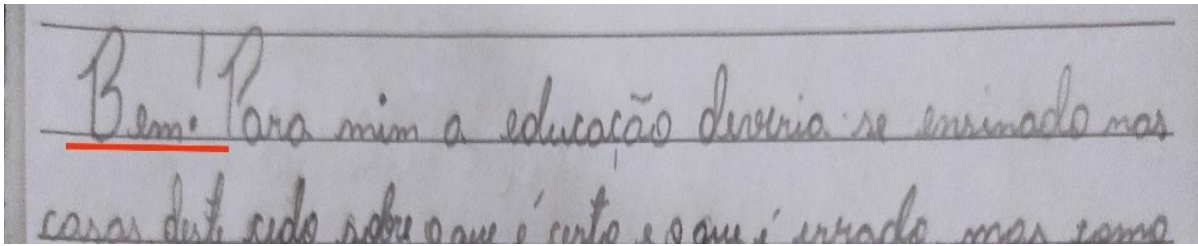 Bem! Para mim a educação deveria se ensinado nas
casas deste cedo sobre o que é certo e o que é errado mas como